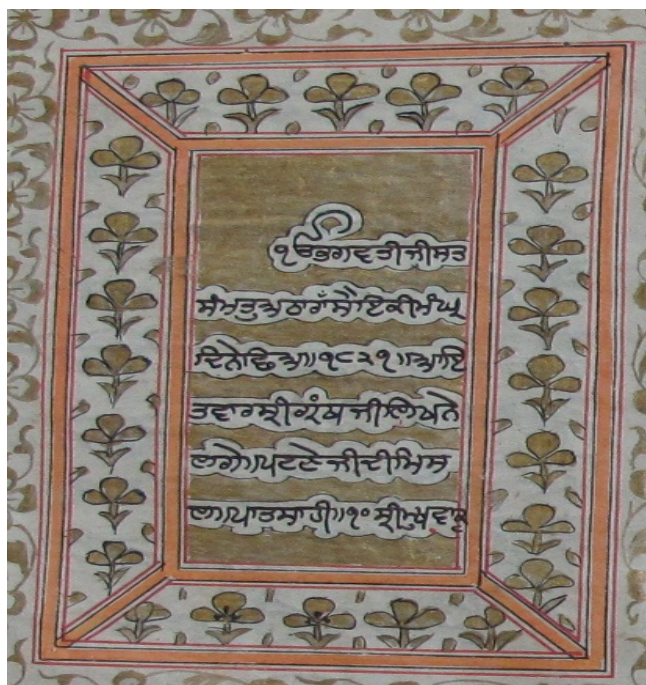 ੴ ਭਗਵਤੀ ਜੀ ਸਤ
ਸੰਮਤੁ ਅਠਾਰਾਂ ਸੈ ਇਕੀ ਮੰਘ੍ਰ
ਦਿਨੇ ॥੧੮੨੧॥ਆਇ
ਤਵਾਰ ਸ੍ਰੀ ਗ੍ਰੰਥ ਜੀ ਲਿਖਨੇ
ਲਗੇ॥ਪਟਣੇ ਜੀ ਦੀ ਮਿਸ
ਲ॥ਪਾਤਸਾਹੀ॥੧੦ ਸ੍ਰੀ ਮੁਖਵਾਕ